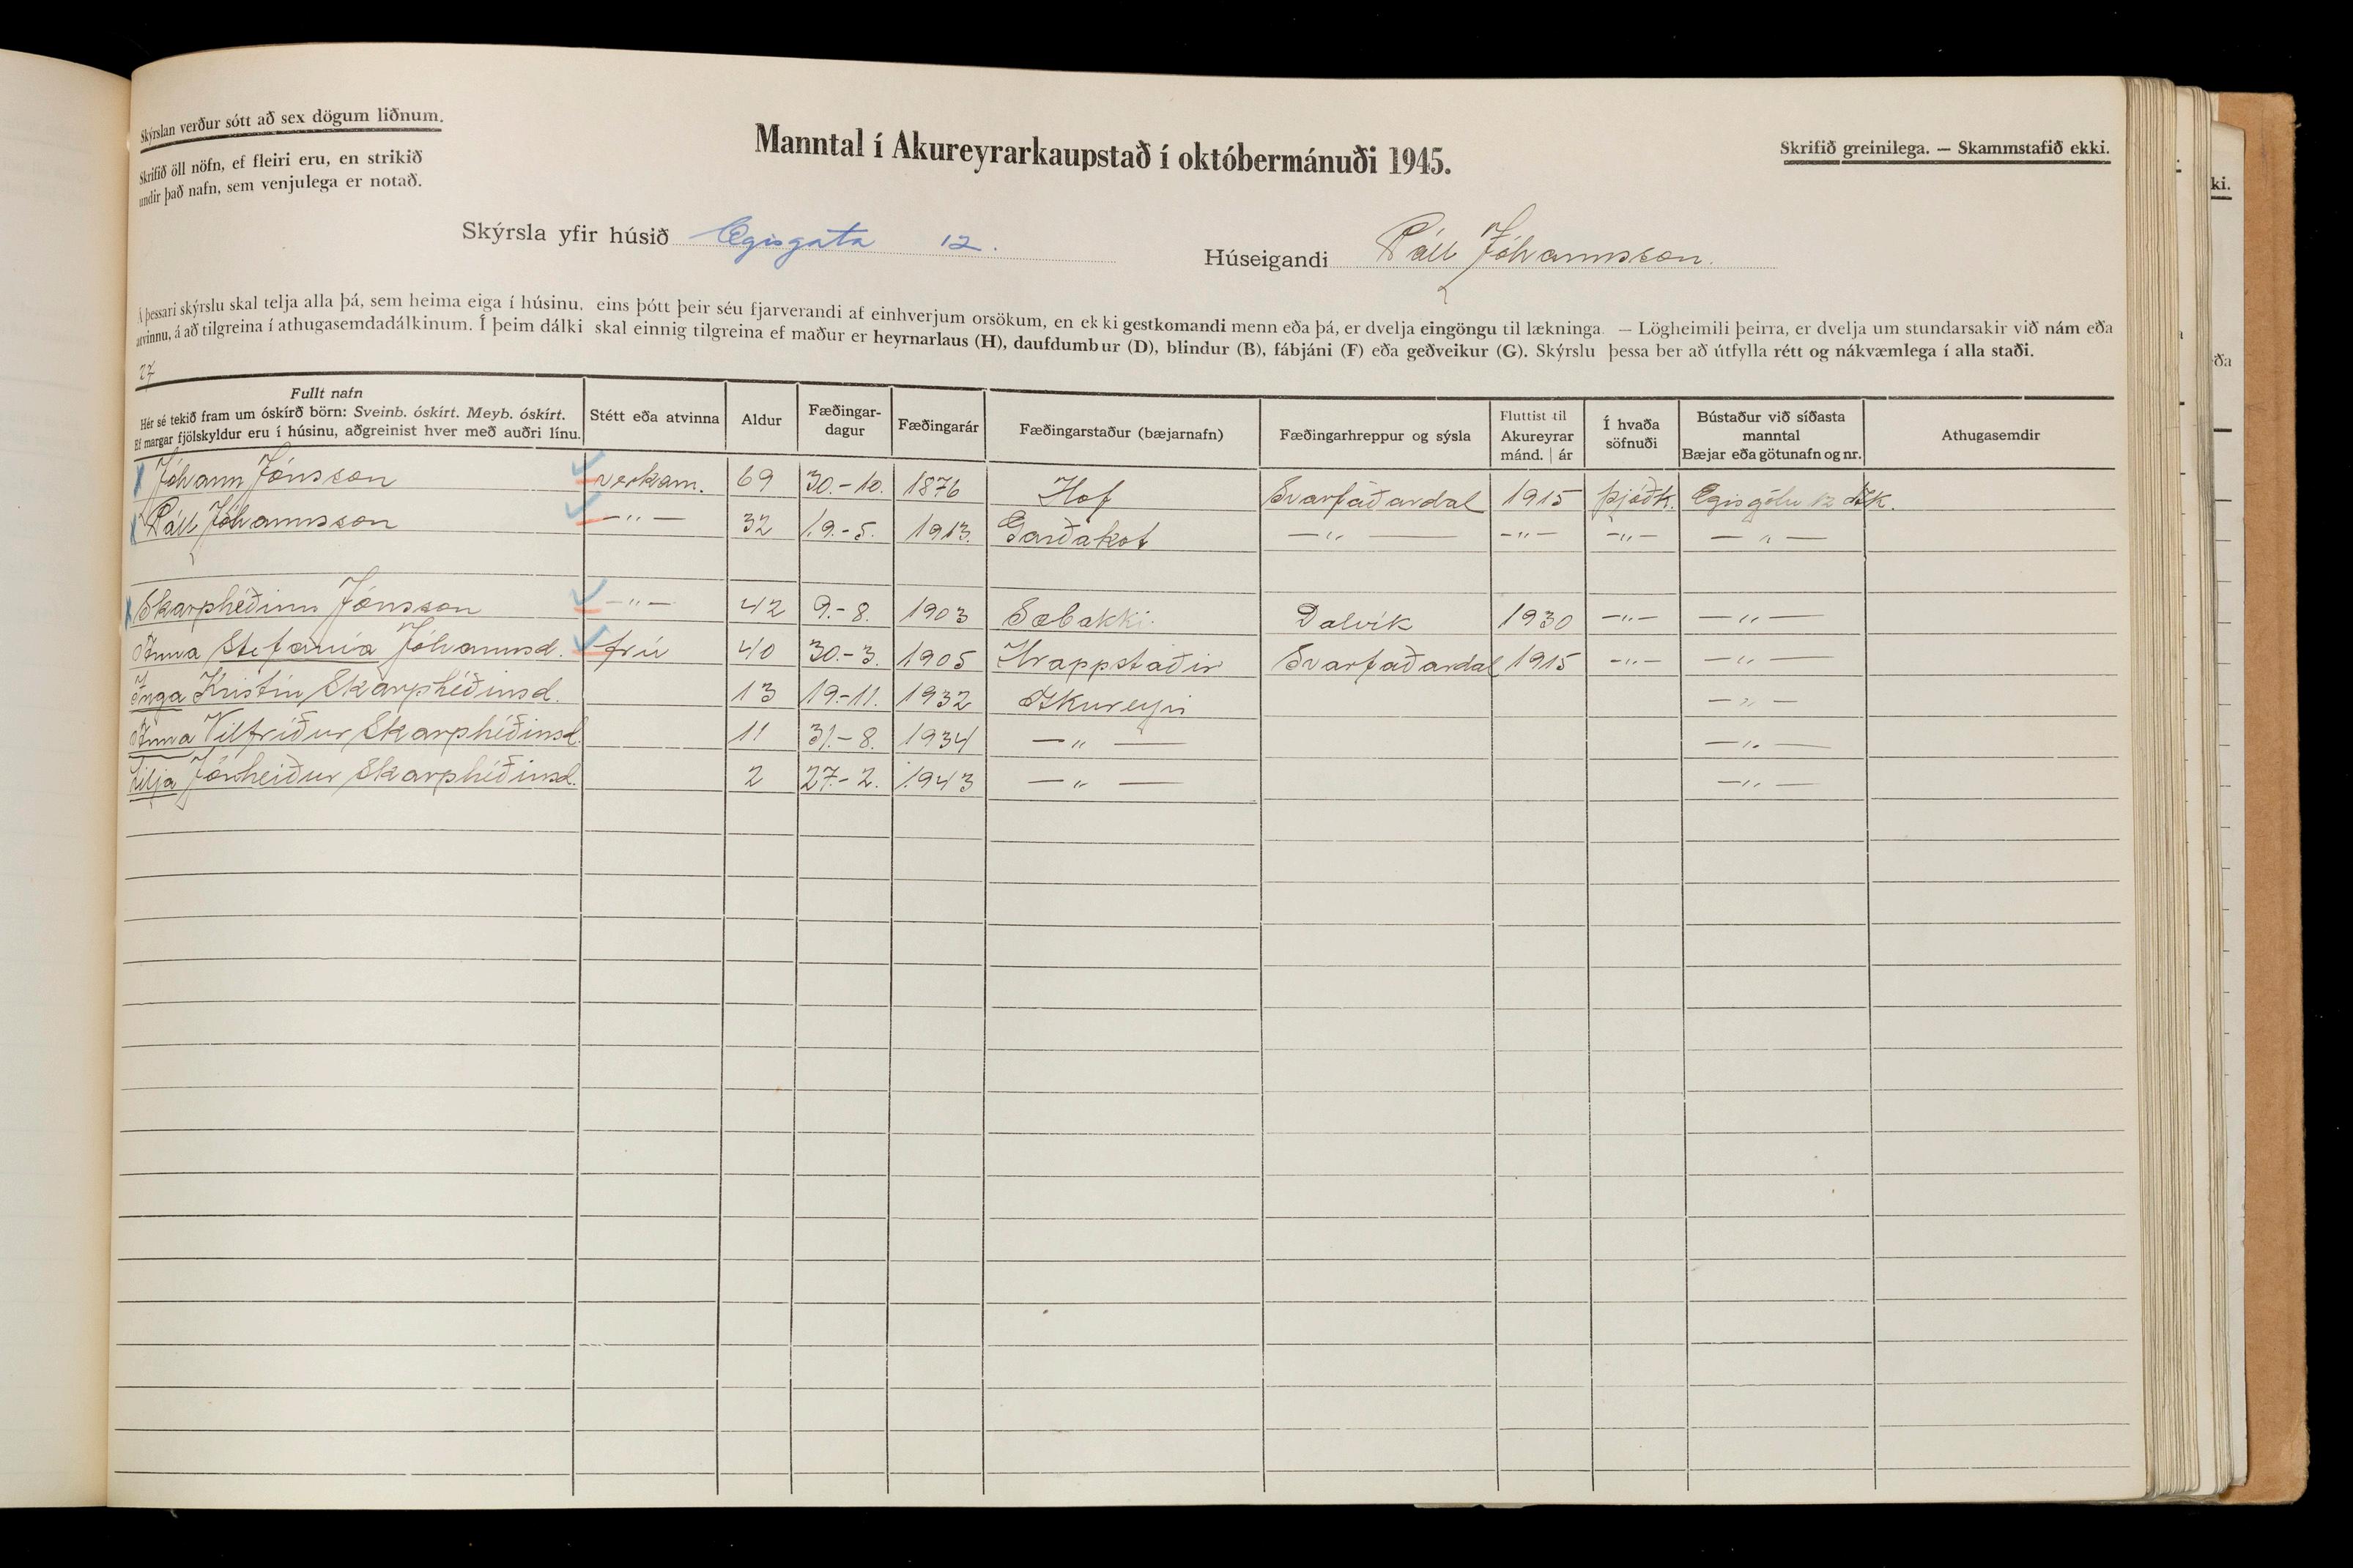 Skýrslan verður sótt að sex dögum liðnum.
Skrifið öll nöfn, ef fleiri eru, en strikið
undir það nafn, sem venjulega er notað.
Manntal í Akureyrarkaupstað í októbermánuði 1945.
Skrifið greinilega. — Skammstafið ekki.
Skýrsla yfir húsið Ægisgata 12.
Húseigandi Páll Jóhannsson.
Á þessari skýrslu skal telja alla þá, sem heima eiga í húsinu, eins þótt þeir séu fjarverandi af einhverjum orsökum, en ekki gestkomandi menn eða þá, er dvelja eingöngu til lækninga. — Lögheimili þeirra, er dvelja um stundarsakir við nám eða
atvinnu, á að tilgreina í athugasemdadálkinum. Í þeim dálki skal einnig tilgreina ef maður er heyrnarlaus (H), daufdumbur (D), blindur (B), fábjáni (F) eða geðveikur (G). Skýrslu þessa ber að útfylla rétt og nákvæmlega í alla staði.
27
Fullt nafn
Hér sé tekið fram um óskírð börn: Sveinb. óskírt. Meyb. óskírt.
Ef margar fjölskyldur eru í húsinu, aðgreinist hver með auðri línu.
Stétt eða atvinna
Aldur
Fæðingar-
dagur
Fæðingarár
Fæðingarstaður (bæjarnafn)
Fæðingarhreppur og sýsla
Fluttist til
Akureyrar
mánd. | ár
Í hvaða
söfnuði
Bústaður við síðasta
manntal
Bæjar eða götunafn og nr.
Athugasemdir
Jóhann Jónsson verkam. 69 30.-10. 1876 Hof Svarfaðardal 1915 þjóðk. Ægisgötu 12 Ak.
Páll Jóhannsson —"— 32 19.-5. 1913. Garðakot —"— —"— —"— —"—
Skarphéðinn Jónsson —"— 42 9.-8. 1903 Sæbakki Dalvík 1930 —"— —"—
Anna Stefanía Jóhannsd. frú 40 30.-3. 1905 Hrappstaðir Svarfaðardal 1915 —"— —"—
Inga Kristín Skarphéðinsd. 13 19.-11. 1932 Akureyri —"—
Anna Vilfríður Skarphéðinsd. 11 31.-8. 1934 —"— —"—
Lilja Jónheiður Skarphéðinsd. 2 27.-2. 1943 —"— —"—
ki.